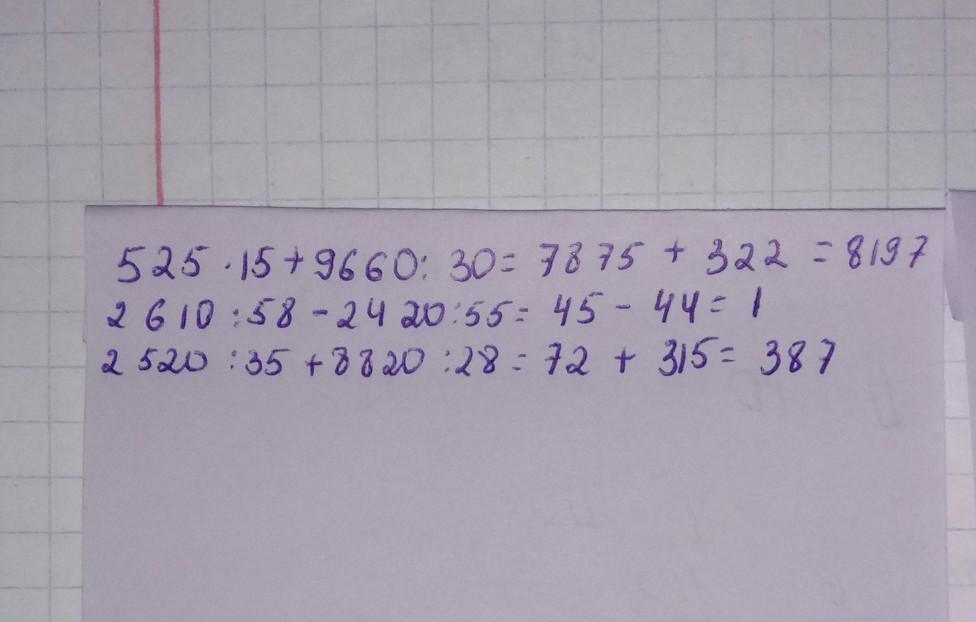 525 · 15 + 9660 : 30 = 7875 + 322 = 8197
2610 : 58 - 2420 : 55 = 45 - 44 = 1
2520 : 35 + 8820 : 28 = 72 + 315 = 387